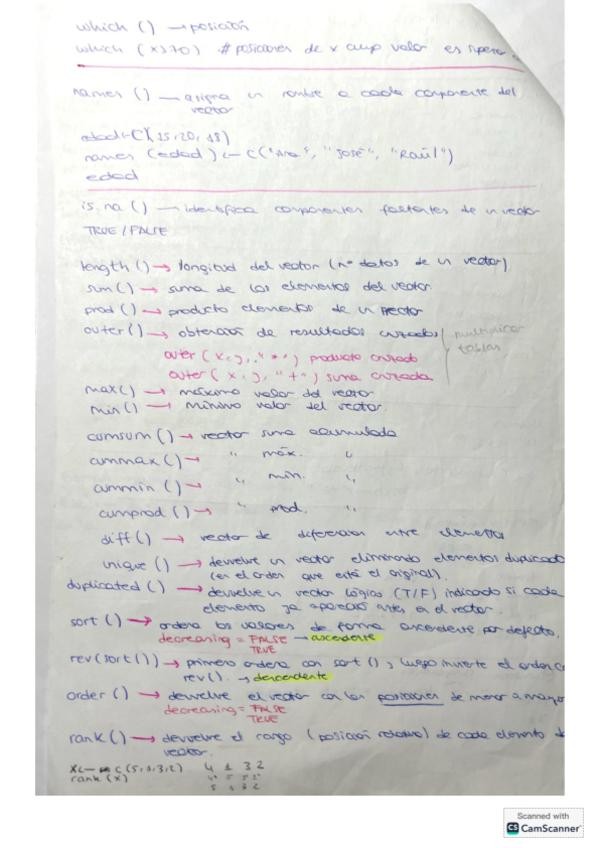 which () → posición
which (x>70) # posiciones de x cuyo valor es superior a
names () → asigna un nombre a cada componente del
vector
edad<-C(15,20,18)
names (edad) <- c("Ana", "José", "Raúl")
edad
is.na () → identifica componentes faltantes de un vector
TRUE/FALSE
length () → longitud del vector (nº datos de un vector)
sum () → suma de los elementos del vector
prod () → producto elementos de un vector
outer () → obtención de resultados cruzados
multiplicar
tablas
outer (x, y, "*") producto cruzado
outer (x, y, "+") suma cruzada
max () → máximo valor del vector
min () → mínimo valor del vector.
comsum () → vector suma acumulada
cummax () → " máx. "
cummin () → " min. "
cumprod () → " prod. "
diff () → vector de diferencias entre elementos
unique () → devuelve un vector eliminando elementos duplicado
(en el orden que está el original).
duplicated () → devuelve un vector lógico (T/F) indicando si cada
elemento ya apareció antes en el vector.
sort () → ordena los valores de forma ascendente por defecto.
decreasing = FALSE → ascendente
TRUE
rev(sort()) → primero ordena con sort(), luego invierte el orden c
rev(). → descendente
order () → devuelve el vector con las posiciones de menor a mayor
decreasing = FALSE
TRUE
rank () → devuelve el rango (posición relativa) de cada elemento de
vector.
x<- c(5,1,3,2) 4 1 3 2
rank (x)
5 1 3 2
Scanned with
CS CamScanner